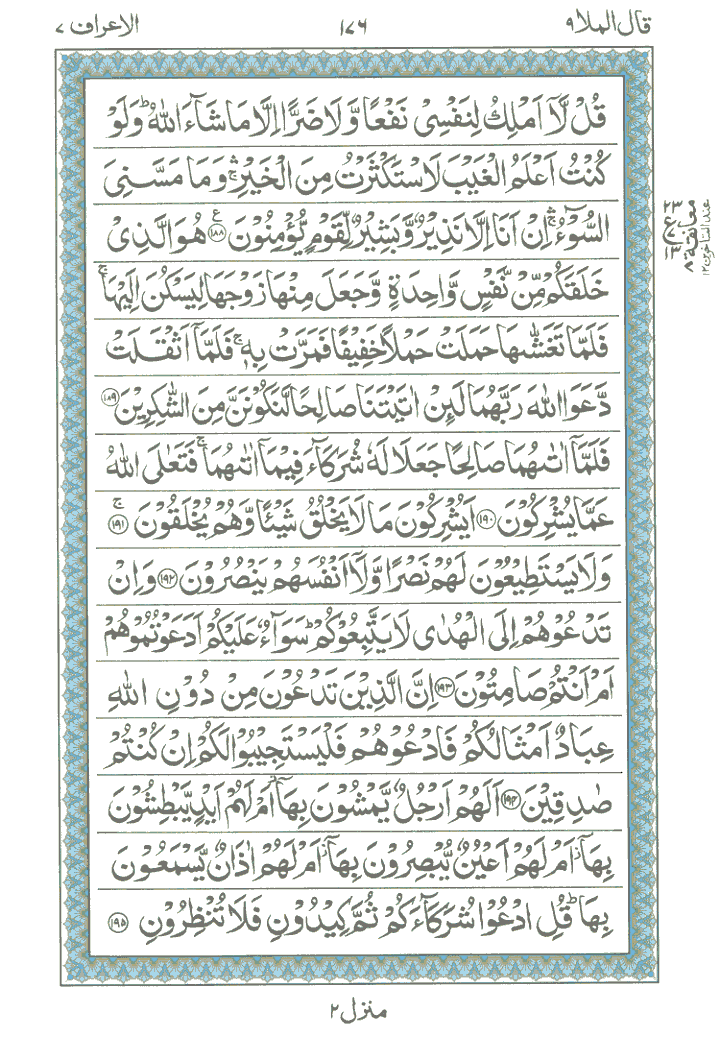 قال الملا ٩
١٧٦
الاعراف ٧
قُلْ لَّاۤ اَمْلِكُ لِنَفْسِیْ نَفْعًا وَّلَا ضَرًّا اِلَّا مَا شَآءَ اللّٰهُ ؕ وَلَوْ
كُنْتُ اَعْلَمُ الْغَیْبَ لَاسْتَكْثَرْتُ مِنَ الْخَیْرِ ۛۚ وَمَا مَسَّنِیَ
السُّوْٓءُ ۛۚ اِنْ اَنَا اِلَّا نَذِیْرٌ وَّبَشِیْرٌ لِّقَوْمٍ یُّؤْمِنُوْنَ ﴿١٨٨﴾ ع هُوَ الَّذِیْ
خَلَقَكُمْ مِّنْ نَّفْسٍ وَّاحِدَةٍ وَّجَعَلَ مِنْهَا زَوْجَهَا لِیَسْكُنَ اِلَیْهَا ۚ
فَلَمَّا تَغَشّٰىهَا حَمَلَتْ حَمْلًا خَفِیْفًا فَمَرَّتْ بِهٖ ۚ فَلَمَّاۤ اَثْقَلَتْ
دَّعَوَا اللّٰهَ رَبَّهُمَا لَىِٕنْ اٰتَیْتَنَا صَالِحًا لَّنَكُوْنَنَّ مِنَ الشّٰكِرِیْنَ ﴿١٨٩﴾
فَلَمَّاۤ اٰتٰىهُمَا صَالِحًا جَعَلَا لَهٗ شُرَكَآءَ فِیْمَاۤ اٰتٰىهُمَا ۚ فَتَعٰلَى اللّٰهُ
عَمَّا یُشْرِكُوْنَ ﴿١٩٠﴾ اَیُشْرِكُوْنَ مَا لَا یَخْلُقُ شَیْـًٔا وَّهُمْ یُخْلَقُوْنَ ﴿١٩١﴾ ۚ
وَلَا یَسْتَطِیْعُوْنَ لَهُمْ نَصْرًا وَّلَاۤ اَنْفُسَهُمْ یَنْصُرُوْنَ ﴿١٩٢﴾ وَاِنْ
تَدْعُوْهُمْ اِلَى الْهُدٰى لَا یَتَّبِعُوْكُمْ ؕ سَوَآءٌ عَلَیْكُمْ اَدَعَوْتُمُوْهُمْ
اَمْ اَنْتُمْ صَامِتُوْنَ ﴿١٩٣﴾ اِنَّ الَّذِیْنَ تَدْعُوْنَ مِنْ دُوْنِ اللّٰهِ
عِبَادٌ اَمْثَالُكُمْ فَادْعُوْهُمْ فَلْیَسْتَجِیْبُوْا لَكُمْ اِنْ كُنْتُمْ
صٰدِقِیْنَ ﴿١٩٤﴾ اَلَهُمْ اَرْجُلٌ یَّمْشُوْنَ بِهَاۤ ؗ اَمْ لَهُمْ اَیْدٍ یَّبْطِشُوْنَ
بِهَاۤ ؗ اَمْ لَهُمْ اَعْیُنٌ یُّبْصِرُوْنَ بِهَاۤ ؗ اَمْ لَهُمْ اٰذَانٌ یَّسْمَعُوْنَ
بِهَا ؕ قُلِ ادْعُوْا شُرَكَآءَكُمْ ثُمَّ كِیْدُوْنِ فَلَا تُنْظِرُوْنِ ﴿١٩٥﴾
٢٣
ع
١٣
معانقة ٨
عند المتاخرين ١٢
منزل ٢